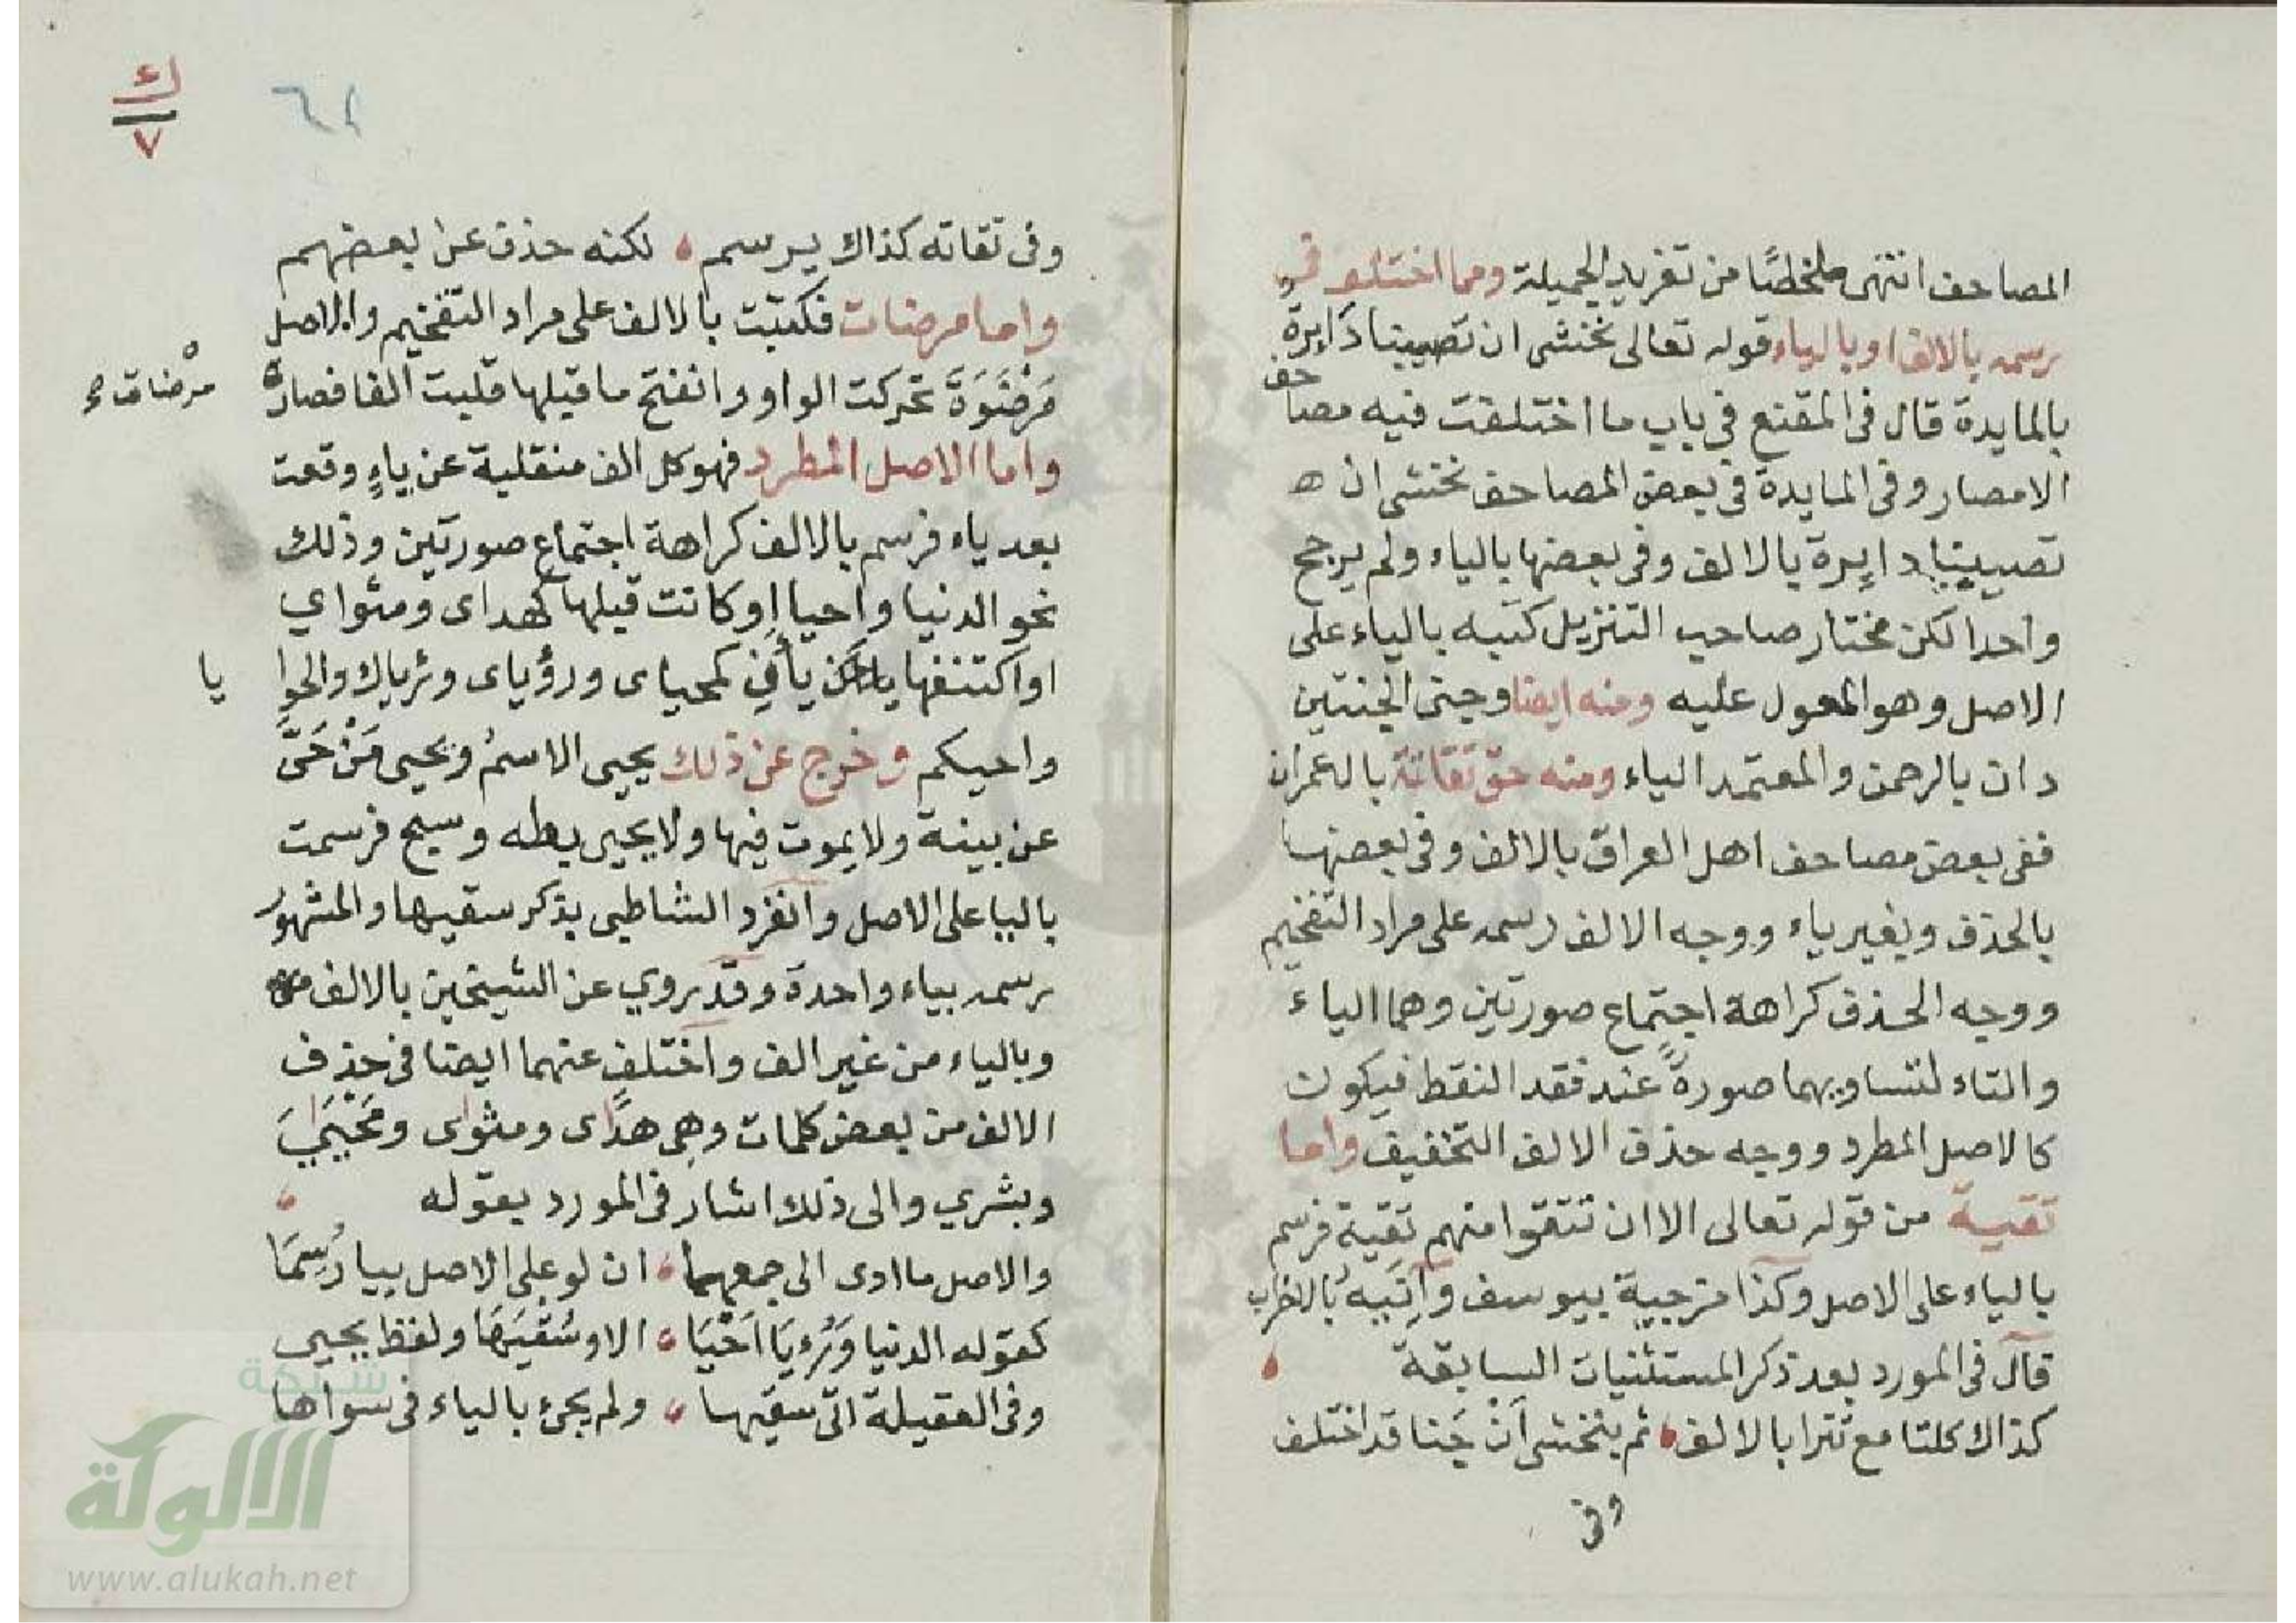 المصاحف انتهى ملخصًا من تغريد الجميلة ومما اختلف في
رسمه بالالف او بالياء قوله تعالى نخشى ان تصيبنا دايرة
بالمايدة قال في المقنع في باب ما اختلفت فيه مصاحف
الامصار وفي المايدة في بعض المصاحف نخشى ان ه
تصيبنا دايرة بالالف وفي بعضها بالياء ولم يرجح
واحدا لكن مختار صاحب التنزيل كتبه بالياء على
الاصل وهو المعول عليه ومنه ايضا وجنى الجنتين
دان بالرحمن والمعتمد الياء ومنه حق تقاته بال عمران
ففي بعض مصاحف اهل العراق بالالف وفي بعضها
بالحذف وبغير ياء ووجه الالف رسمه على مراد التفخيم
ووجه الحذف كراهة اجتماع صورتين وهما الياء
والتاء لتساويهما صورةً عند فقد النقط فيكون
كالاصل المطرد ووجه حذف الالف التخفيف واما
تقية من قوله تعالى الا ان تتقوا منهم تقية فرسم
بالياء على الاصل وكذا مزجية بيوسف وآتيه بالاحزاب
قال في المورد بعد ذكر المستثنيات السابقة
كذاك كلتا مع تترا بالالف ثم بنخشى أنْ جَنا قد اختلف
وفي
٦٢
ك
٧
وفي تقاته كذاك يرسم لكنه حذف عن بعضهم
واما مرضات فكتبت بالالف على مراد التفخيم والاصل
مَرْضَوَةَ تحركت الواو وانفتح ما قبلها قلبت الفا فصارة
مرْضاة
واما الاصل المطرد فهو كل الف منقلبة عن ياءٍ وقعت
بعد ياء فرسم بالالف كراهة اجتماع صورتين وذلك
نحو الدنيا واحيا او كانت قبلها كهداى ومثواي
او اكتنفها يأين كمحياى ورؤياى ورياك والحوا
يا
واحيكم وخرج عن ذلك يحيى الاسمُ ويحيى مَنْ حَىَّ
عن بينة ولا يموت فيها ولا يحيى بطه وسبح فرسمت
باليا على الاصل وانفرد الشاطبى بذكر سقيها والمشهور
رسمه بياء واحدة وقد روي عن الشيخين بالالف
وبالياء من غير الف واختلف عنهما ايضا في حذف
الالف من بعض كلمات وهي هداى ومثواى ومَحْيَايَ
وبشري والى ذلك اشار في المورد بقوله
والاصل ما ادى الى جمعهما ان لو على الاصل بيا رُسِمَا
كقوله الدنيا وَرُءيَا اَحْيَا الا وسُقْيَهَا ولفظ يحيى
وفي العقيلة اتى سقيها ولم يجئ بالياء في سواها
شبكة
الالوكة
www.alukah.net